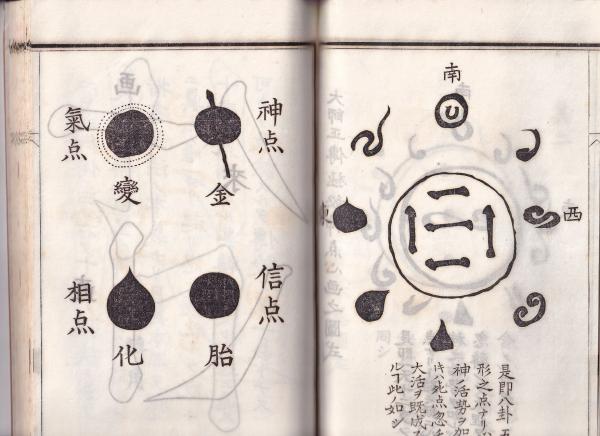 南
西
是即八卦五
形之点ナリ
神ノ活勢ヲ加
キハ死点忽チ
大活ヲ既成ス
ルヿ此ノ如シ
神点
金
氣点
變
信点
胎
相点
化